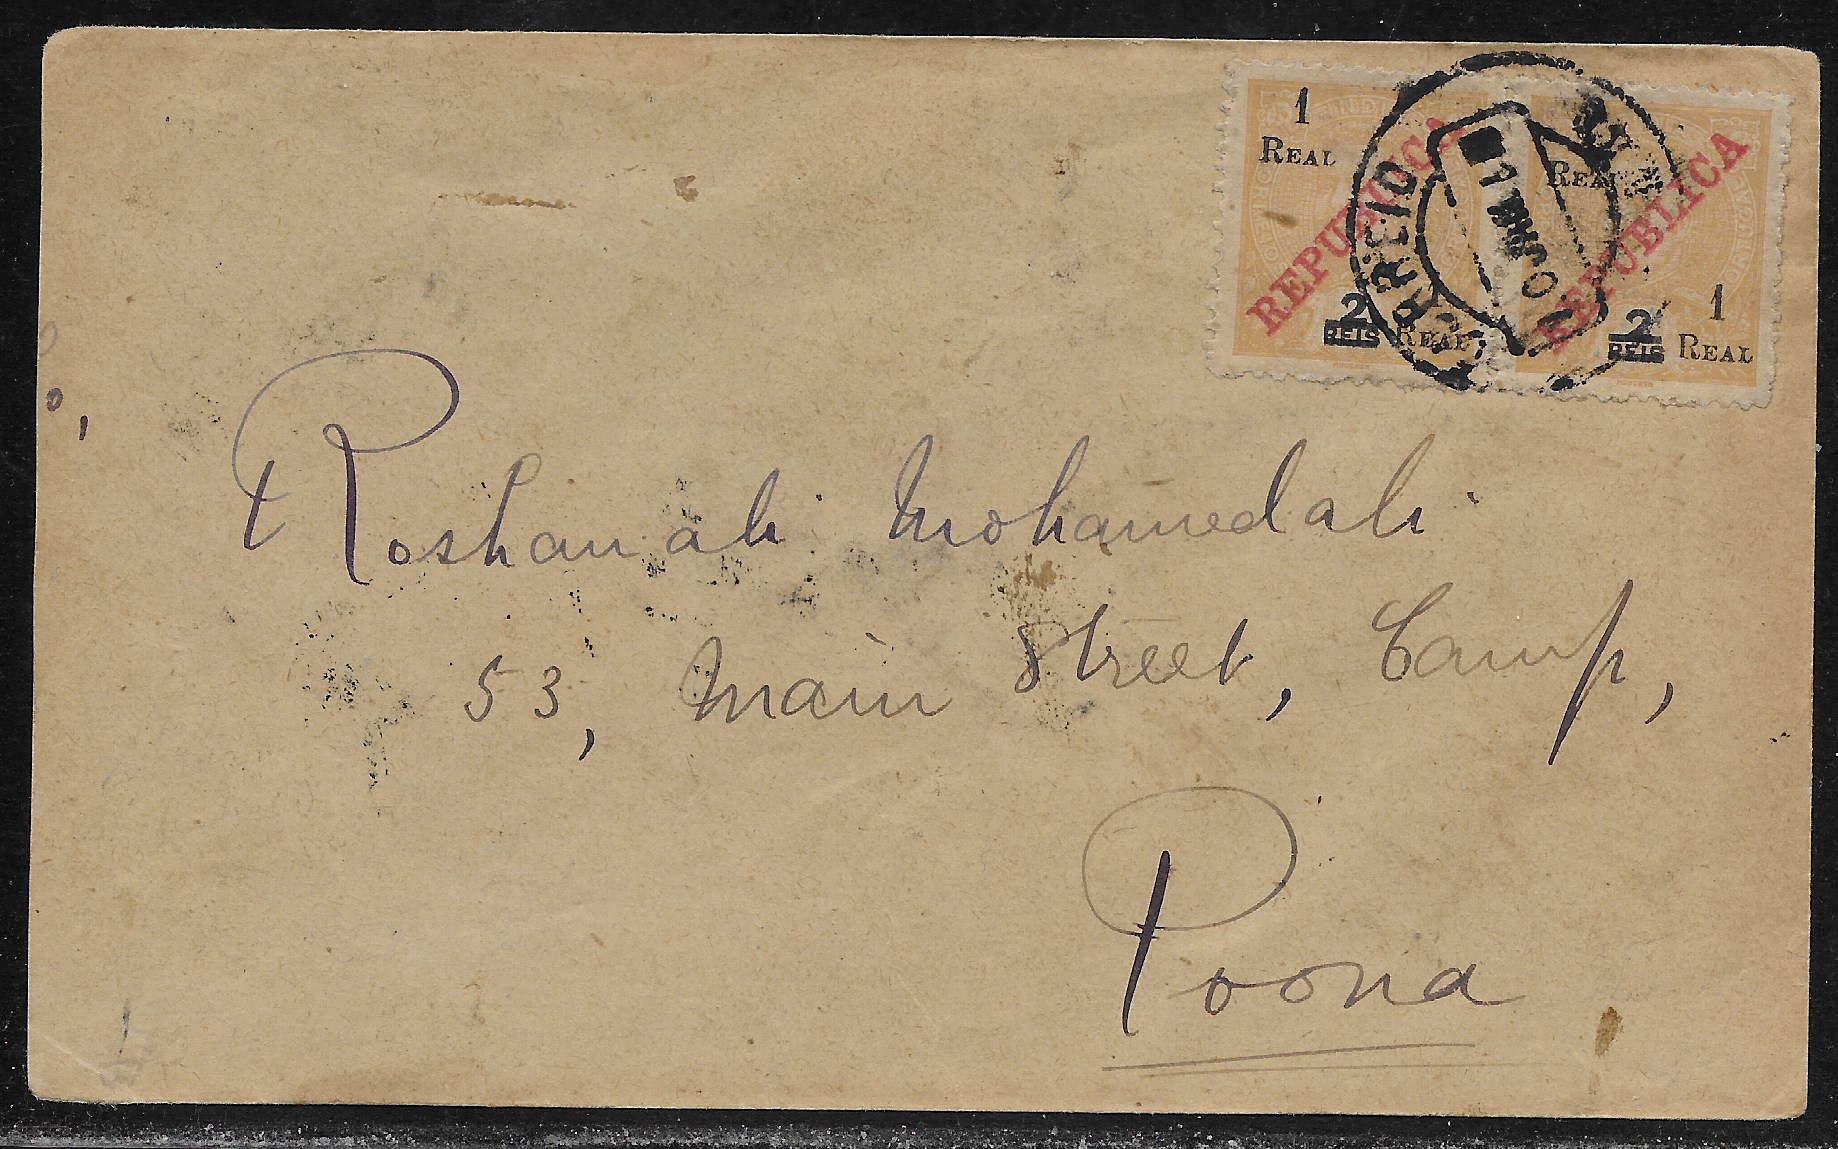 1 REAL
REPUBLICA
2 REIS
1 REAL
REAL
REPUBLICA
2 REIS
1 REAL
CORREIO
Roshanali Mohamedali
53, Main Street, Camp,
Poona